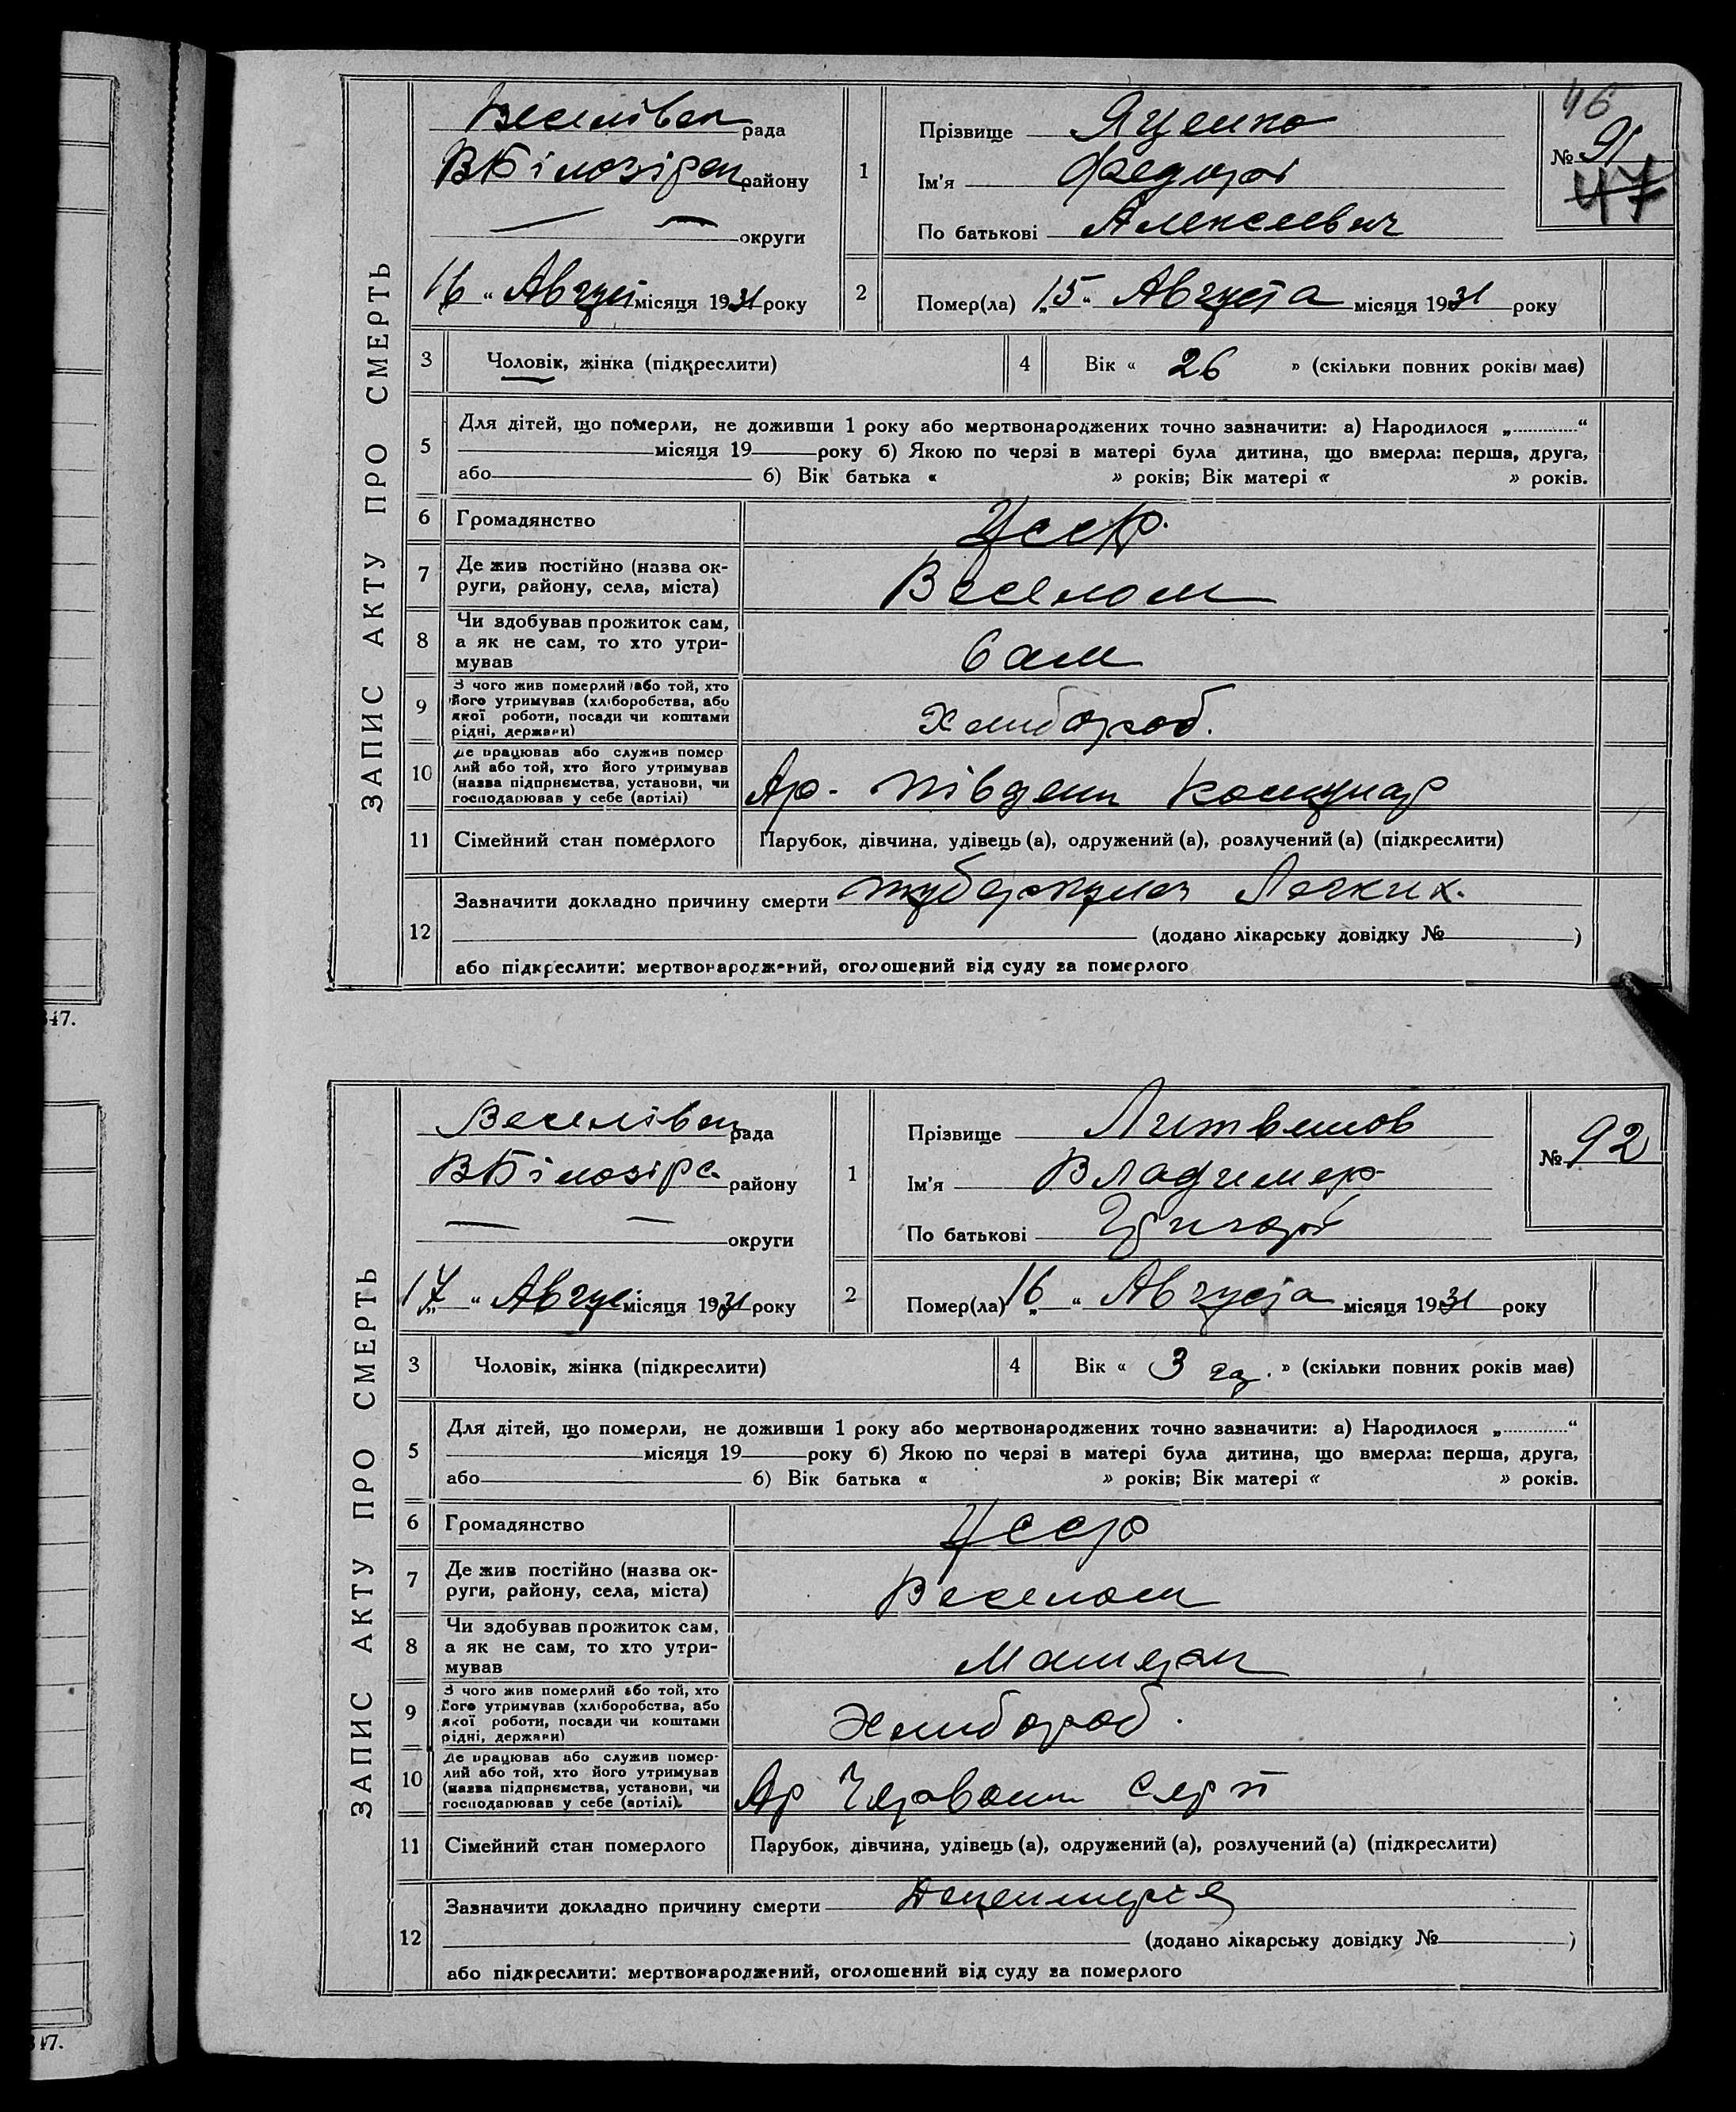 347.
347.
46
ЗАПИС АКТУ ПРО СМЕРТЬ
Веселівск рада
ВБілозірск району
округи
16 " Август місяця 1931 року
1
Прізвище Яценко
Ім'я Федор
По батькові Алексеевич
№ 91
47
2
Помер(ла) „15" Августа місяця 1931 року
3 Чоловік, жінка (підкреслити)
4 Вік « 26 » (скільки повних років має)
5
Для дітей, що померли, не доживши 1 року або мертвонароджених точно зазначити: а) Народилося „............“
місяця 19 року б) Якою по черзі в матері була дитина, що вмерла: перша, друга,
або б) Вік батька « » років; Вік матері « » років.
6 Громадянство Усср.
7 Де жив постійно (назва ок-
руги, району, села, міста) Веселом
8 Чи здобував прожиток сам,
а як не сам, то хто утри-
мував Сам
9 З чого жив померлий або той, хто
його утримував (хліборобства, або
якої роботи, посади чи коштами
рідні, держави) Хлибороб.
10 Де працював або служив помер-
лий або той, хто його утримував
(назва підприємства, установи, чи
господарював у себе (артілі) Ар. Південн Комунар
11 Сімейний стан померлого Парубок, дівчина, удівець (а), одружений (а), розлучений (а) (підкреслити)
12
Зазначити докладно причину смерти туберкулез Легких.
(додано лікарську довідку № )
або підкреслити: мертвонароджений, оголошений від суду за померлого
ЗАПИС АКТУ ПРО СМЕРТЬ
Веселівск рада
ВБілозірс. району
округи
„17" Август місяця 1931 року
1
Прізвище Литвинов
Ім'я Владимер
По батькові Григор
№ 92
2
Помер(ла) „16" Августа місяця 1931 року
3 Чоловік, жінка (підкреслити)
4 Вік « 3 го. » (скільки повних років має)
5
Для дітей, що померли, не доживши 1 року або мертвонароджених точно зазначити: а) Народилося „............“
місяця 19 року б) Якою по черзі в матері була дитина, що вмерла: перша, друга,
або б) Вік батька « » років; Вік матері « » років.
6 Громадянство Усср
7 Де жив постійно (назва ок-
руги, району, села, міста) Веселом
8 Чи здобував прожиток сам,
а як не сам, то хто утри-
мував
9 З чого жив померлий або той, хто
його утримував (хліборобства, або
якої роботи, посади чи коштами
рідні, держави) Хлибороб.
10 Де працював або служив помер-
лий або той, хто його утримував
(назва підприємства, установи, чи
господарював у себе (артілі). Ар Червоний Серп
11 Сімейний стан померлого Парубок, дівчина, удівець (а), одружений (а), розлучений (а) (підкреслити)
12
Зазначити докладно причину смерти Дезентерия
(додано лікарську довідку № )
або підкреслити: мертвонароджений, оголошений від суду за померлого